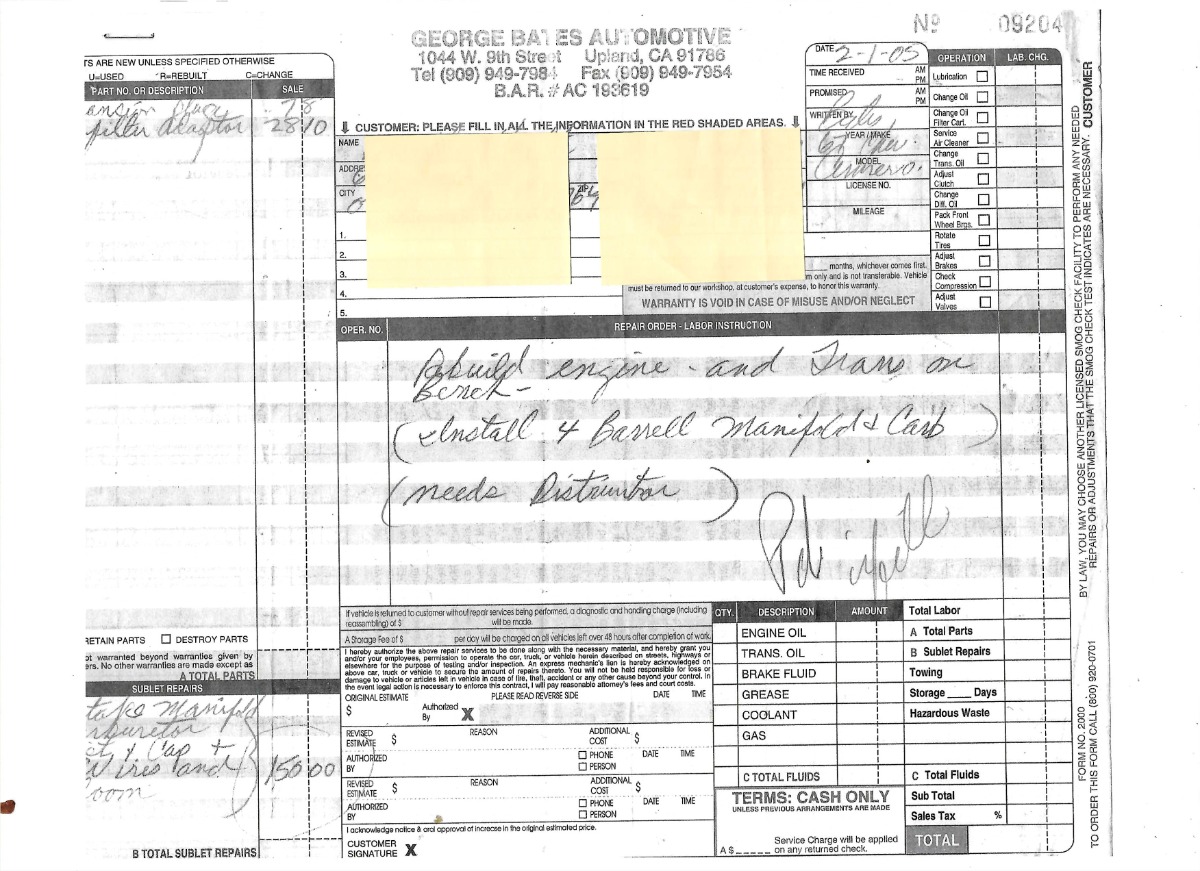 Nº 09204
GEORGE BATES AUTOMOTIVE
1044 W. 9th Street Upland, CA 91786
Tel (909) 949-7984 Fax (909) 949-7954
B.A.R. # AC 193619
TS ARE NEW UNLESS SPECIFIED OTHERWISE
U=USED R=REBUILT C=CHANGE
PART NO. OR DESCRIPTION SALE
78
filter Adaptor 28 10
CUSTOMER: PLEASE FILL IN ALL THE INFORMATION IN THE RED SHADED AREAS.
NAME
ADDRE
CITY
ZIP
1.
2.
3.
4.
5.
DATE 2-1-05
TIME RECEIVED AM PM
PROMISED AM PM
WRITTEN BY
YEAR / MAKE
67
MODEL
LICENSE NO.
MILEAGE
OPERATION LAB. CHG.
Lubrication
Change Oil
Change Oil Filter Cart.
Service Air Cleaner
Change Trans. Oil
Adjust Clutch
Change Diff. Oil
Pack Front Wheel Brgs.
Rotate Tires
Adjust Brakes
Check Compression
Adjust Valves
months, whichever comes first.
m only and is not transferable. Vehicle
must be returned to our workshop, at customer's expense, to honor this warranty.
WARRANTY IS VOID IN CASE OF MISUSE AND/OR NEGLECT
OPER. NO. REPAIR ORDER - LABOR INSTRUCTION
Rebuild engine - and Trans on
Bench -
Install 4 Barrell Manifold & Carb
(needs Distributor)
RETAIN PARTS DESTROY PARTS
ot warranted beyond warranties given by
ers. No other warranties are made except as
A TOTAL PARTS
SUBLET REPAIRS
take Manifold
rburetor
Cap +
Wires and 150 00
oom
B TOTAL SUBLET REPAIRS
If vehicle is returned to customer without repair services being performed, a diagnostic and handling charge (including
reassembling) of $ will be made.
A Storage Fee of $ per day will be charged on all vehicles left over 48 hours after completion of work.
I hereby authorize the above repair services to be done along with the necessary material, and hereby grant you
and/or your employees, permission to operate the car, truck, or vehicle herein described on streets, highways or
elsewhere for the purpose of testing and/or inspection. An express mechanic's lien is hereby acknowledged on
above car, truck or vehicle to secure the amount of repairs thereto. You will not be held responsible for loss or
damage to vehicle or articles left in vehicle in case of fire, theft, accident or any other cause beyond your control. In
the event legal action is necessary to enforce this contract, I will pay reasonable attorney's fees and court costs.
ORIGINAL ESTIMATE PLEASE READ REVERSE SIDE DATE TIME
$ Authorized By X
REVISED ESTIMATE $ REASON ADDITIONAL COST $
AUTHORIZED BY PHONE PERSON DATE TIME
REVISED ESTIMATE $ REASON ADDITIONAL COST $
AUTHORIZED BY PHONE PERSON DATE TIME
I acknowledge notice & oral approval of increase in the original estimated price.
CUSTOMER SIGNATURE X
QTY. DESCRIPTION AMOUNT
ENGINE OIL
TRANS. OIL
BRAKE FLUID
GREASE
COOLANT
GAS
C TOTAL FLUIDS
TERMS: CASH ONLY
UNLESS PREVIOUS ARRANGEMENTS ARE MADE
A $_____ Service Charge will be applied on any returned check.
Total Labor
A Total Parts
B Sublet Repairs
Towing
Storage ____ Days
Hazardous Waste
C Total Fluids
Sub Total
Sales Tax %
TOTAL
BY LAW, YOU MAY CHOOSE ANOTHER LICENSED SMOG CHECK FACILITY TO PERFORM ANY NEEDED
REPAIRS OR ADJUSTMENTS THAT THE SMOG CHECK TEST INDICATES ARE NECESSARY. CUSTOMER
FORM NO. 2000
TO ORDER THIS FORM CALL (800) 920-0701